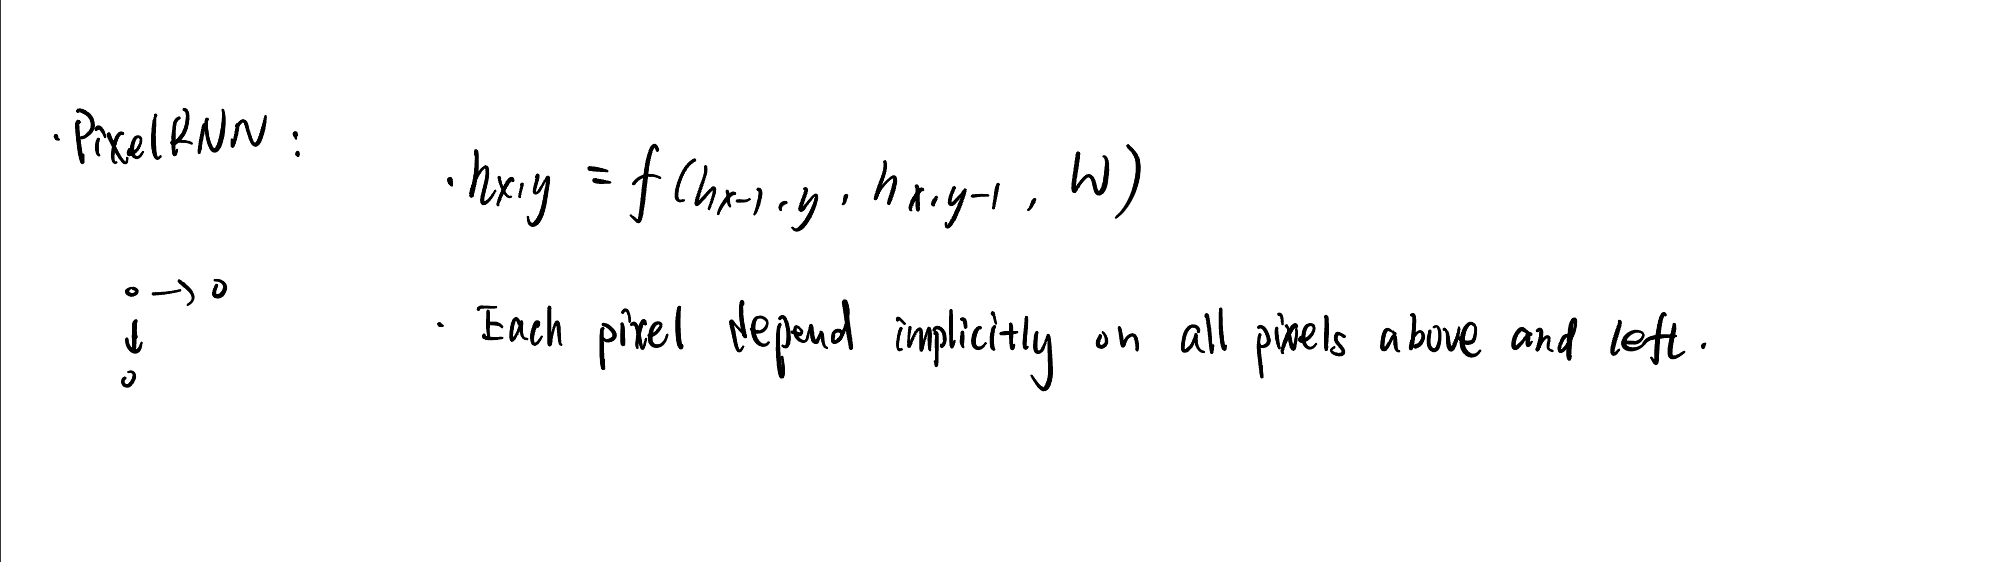 · PixelRNN :
· hx,y = f(hx-1,y , hx,y-1 , W)
· Each pixel depend implicitly on all pixels above and left.